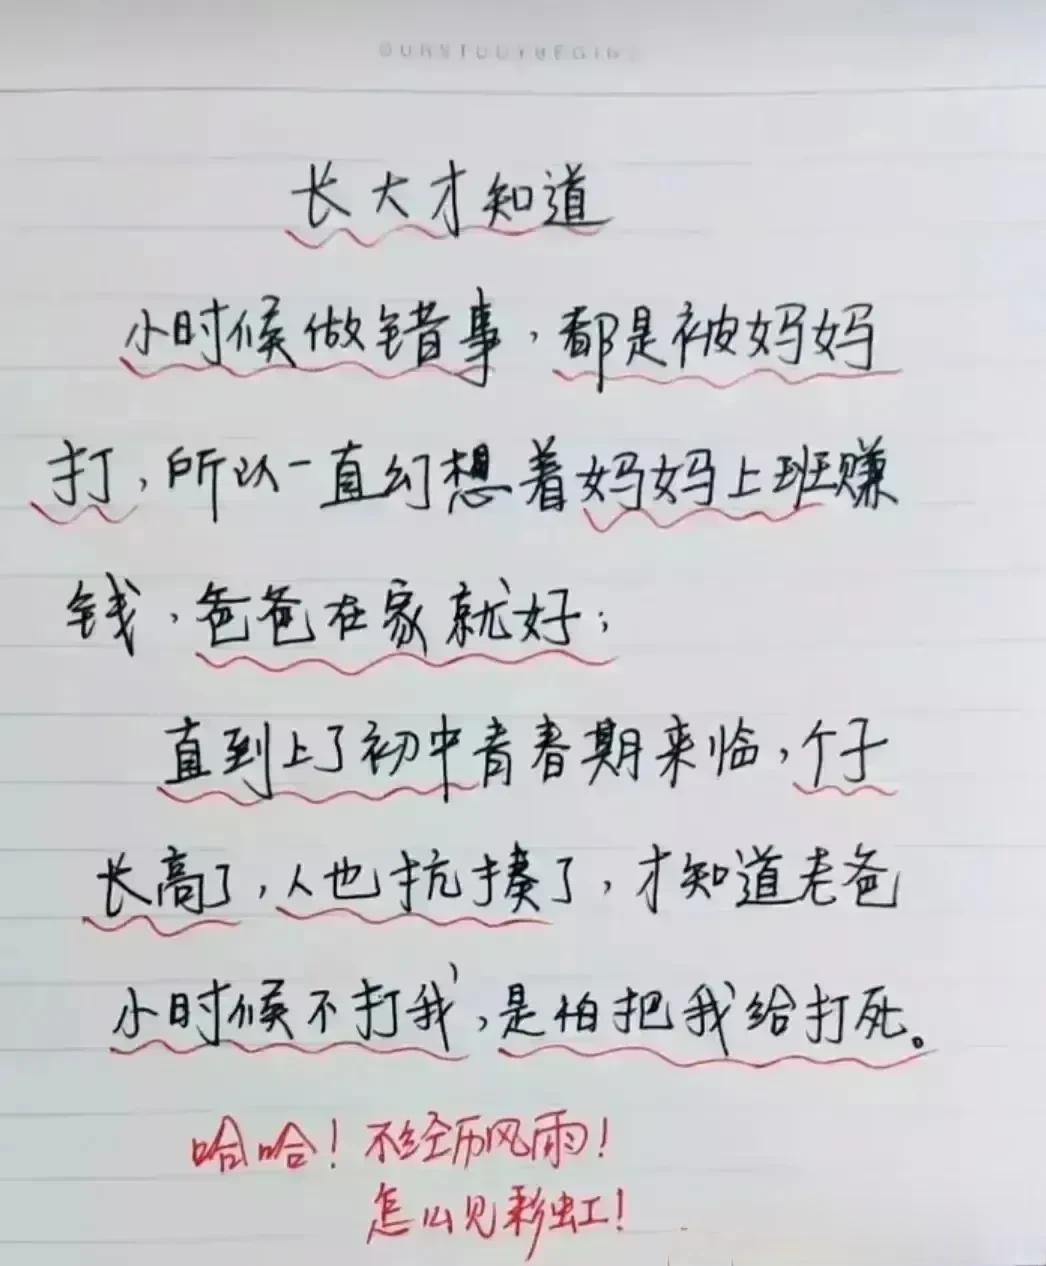 OURSTUDYBEGINS
长大才知道
小时候做错事，都是被妈妈
打，所以一直幻想着妈妈上班赚
钱，爸爸在家就好；
直到上了初中青春期来临，个子
长高了，人也抗揍了，才知道老爸
小时候不打我，是怕把我给打死。
哈哈！不经历风雨！
怎么见彩虹！